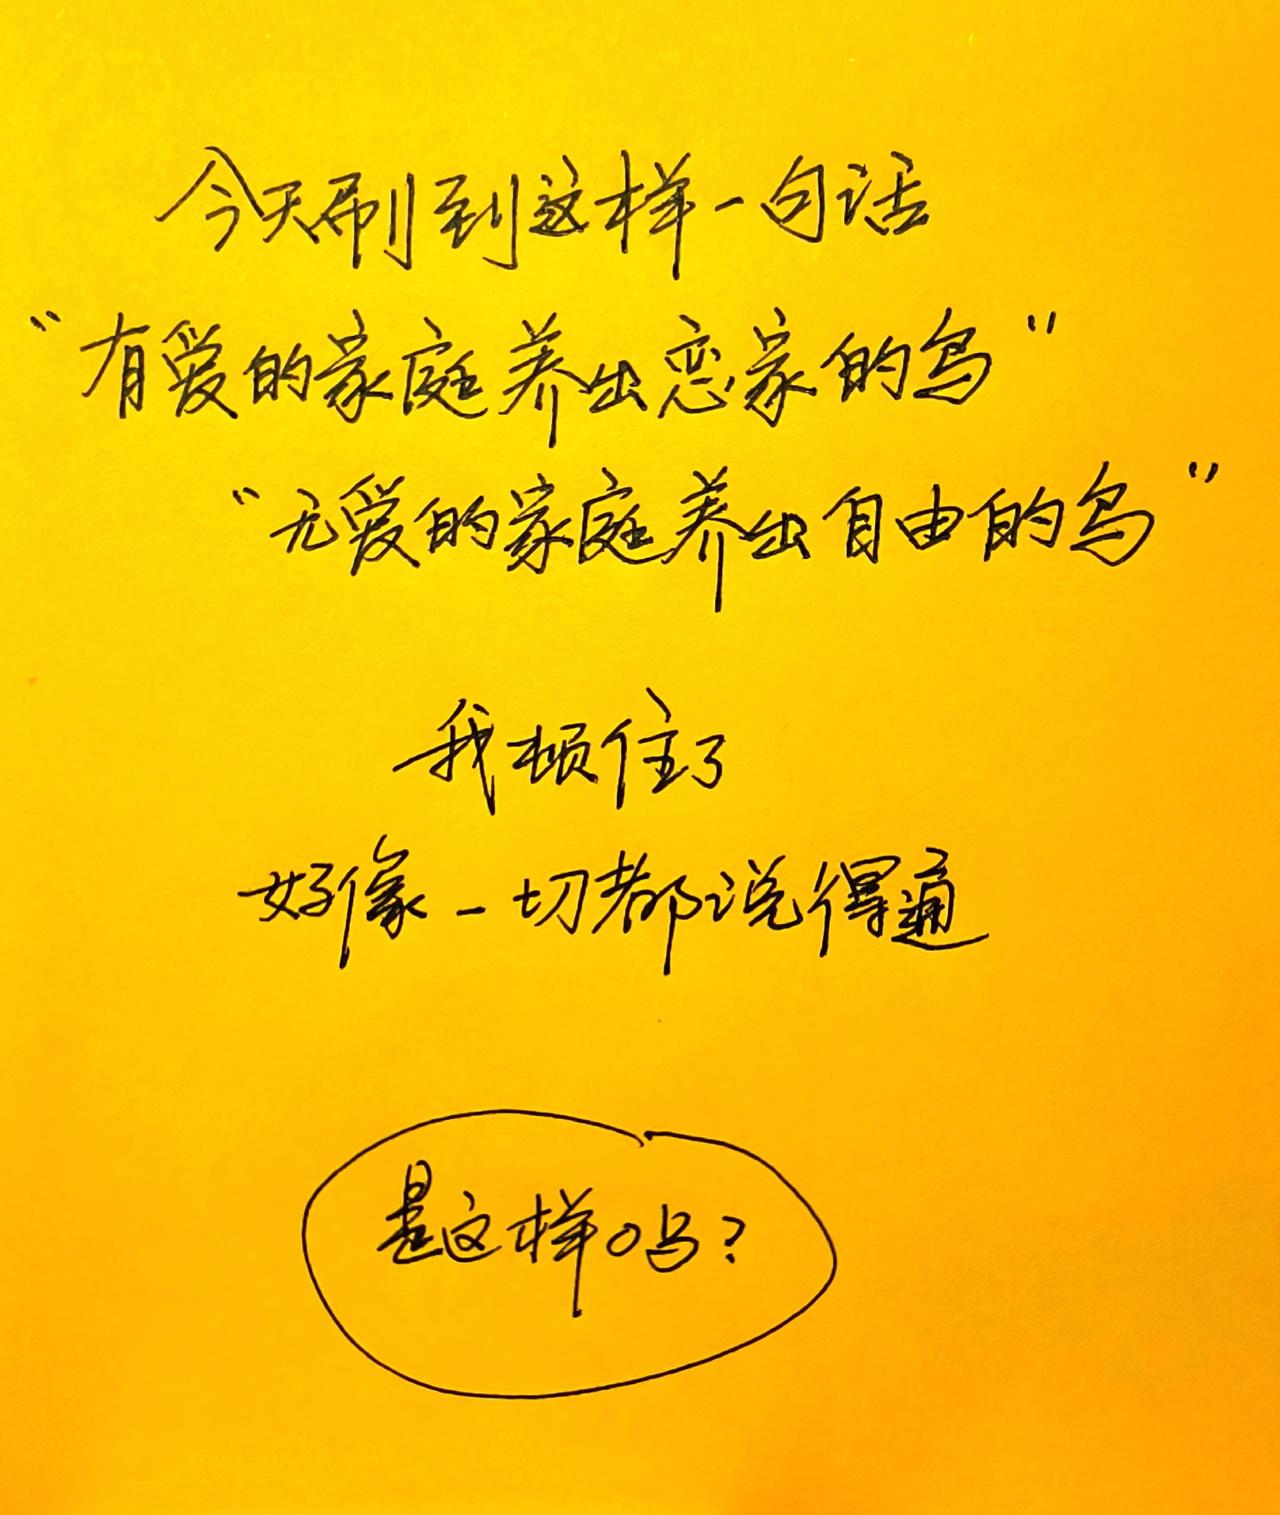 今天刷到这样一句话
“有爱的家庭养出恋家的鸟”
“无爱的家庭养出自由的鸟”
我顿住了
好像一切都说得通
是这样吗?